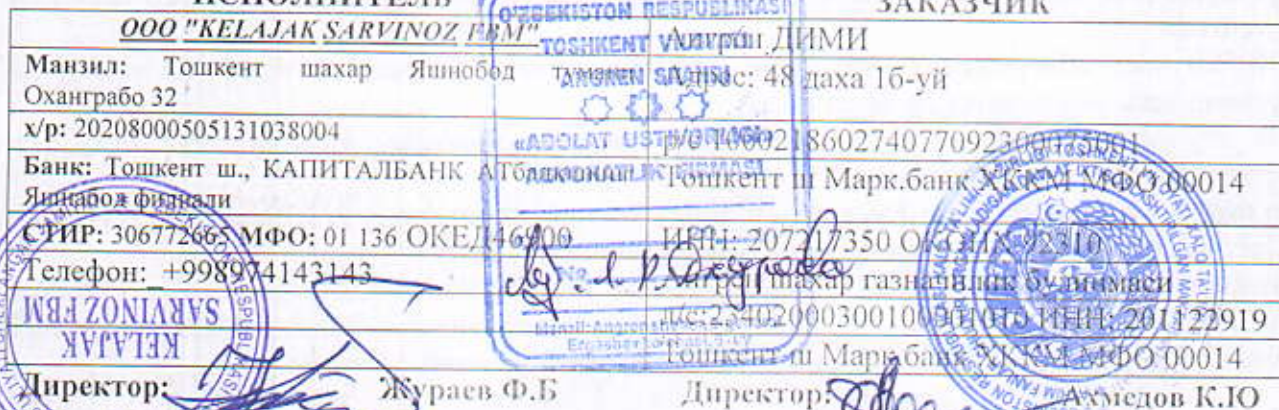 ИСПОЛНИТЕЛЬ
ООО "KELAJAK SARVINOZ FBM"
Манзил: Тошкент шахар Яшнобод тумани
Оханграбо 32
х/р: 20208000505131038004
Банк: Тошкент ш., КАПИТАЛБАНК АТ
Яшнабод филиали
СТИР: 306772665 МФО: 01 136 ОКЕД 46900
Телефон: +998974143143
Директор: Жураев Ф.Б
ЗАКАЗЧИК
Ангрен ДИМИ
Адрес: 48 даха 1б-уй
р/с 100021860274077092300075001
Тошкент ш Марк.банк ХККМ МФО 00014
ИНН: 207217350 92310
Ангрен шахар газначилик булинмаси
л/с:23402000300100001010 ИНН: 201122919
Тошкент ш Марк.банк ХККМ МФО 00014
Директор: Ахмедов К.Ю
O'ZBEKISTON RESPUBLIKASI
TOSHKENT VILOYATI
ANGREN SHAHRI
«ADOLAT USTUVORLIGI»
ADVOKATLIK FIRMASI
№
KELAJAK
SARVINOZ FBM